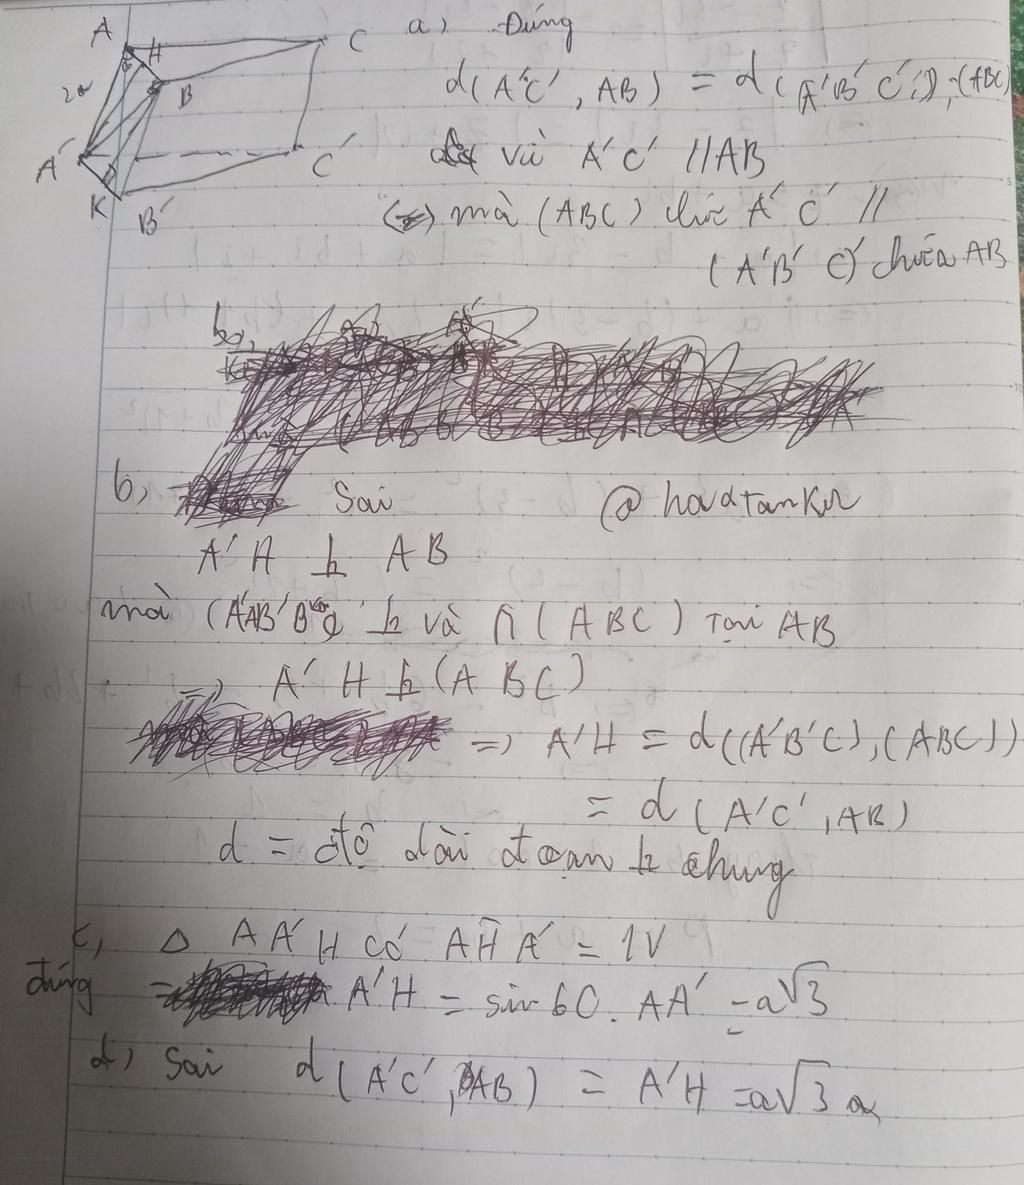 A
H
C
2a
B
A'
C'
K
B'
a, Đúng
d(A'C', AB) = d((A'B'C'), (ABC))
vì A'C' // AB
mà (ABC) // A'C'
(A'B'C') chứa AB
b, Sai @hodatanker
A'A ⊥ AB
mà (A'AB'B) ⊥ và ∩ (ABC) tại AB
=> A'H ⊥ (ABC)
=> A'H = d((A'B'C'), (ABC))
= d(A'C', AB)
d = độ dài đoạn ⊥ chung
c, Δ AA'H có AHA' = 1V
đúng A'H = sin 60. AA' = a√3
d, Sai d(A'C', AB) = A'H = a√3